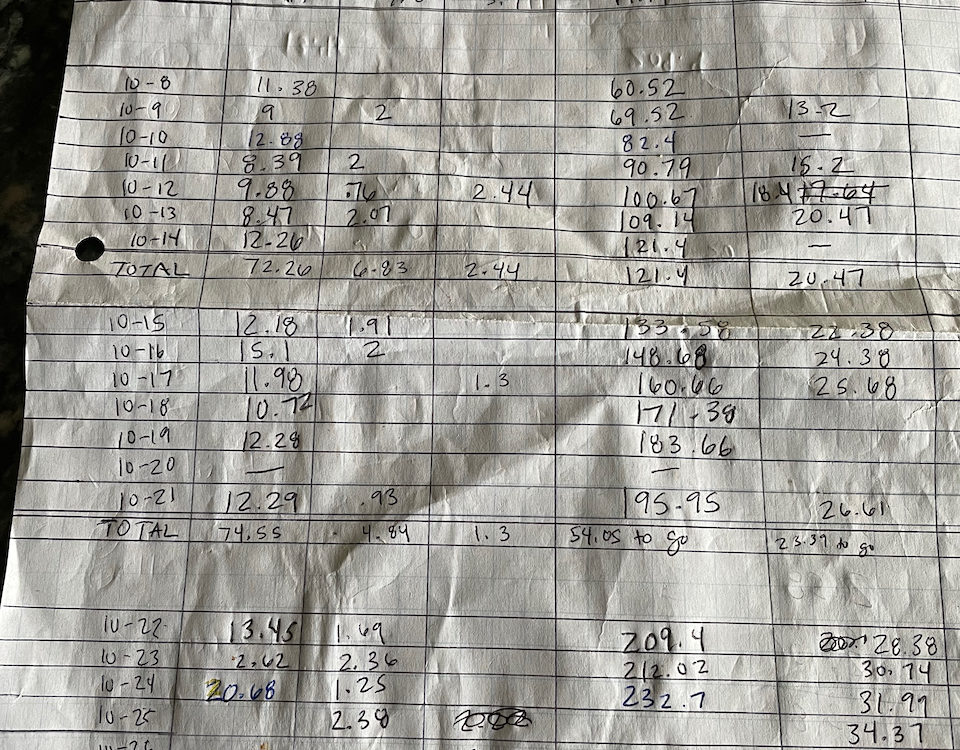 10-8 11.38 60.52
10-9 9 2 69.52 13.2
10-10 12.88 82.4 —
10-11 8.39 2 90.79 15.2
10-12 9.88 .76 2.44 100.67 18.4 17.64
10-13 8.47 2.07 109.14 20.47
10-14 12.26 121.4 —
TOTAL 72.26 6.83 2.44 121.4 20.47
10-15 12.18 1.91 133.58 22.38
10-16 15.1 2 148.68 24.38
10-17 11.98 1.3 160.66 25.68
10-18 10.72 171.38
10-19 12.28 183.66
10-20 — —
10-21 12.29 .93 195.95 26.61
TOTAL 74.55 4.84 1.3 54.05 to go 23.39 to go
10-22 13.45 1.69 209.4 28.38
10-23 2.62 2.36 212.02 30.74
10-24 20.68 1.25 232.7 31.99
10-25 2.38 34.37